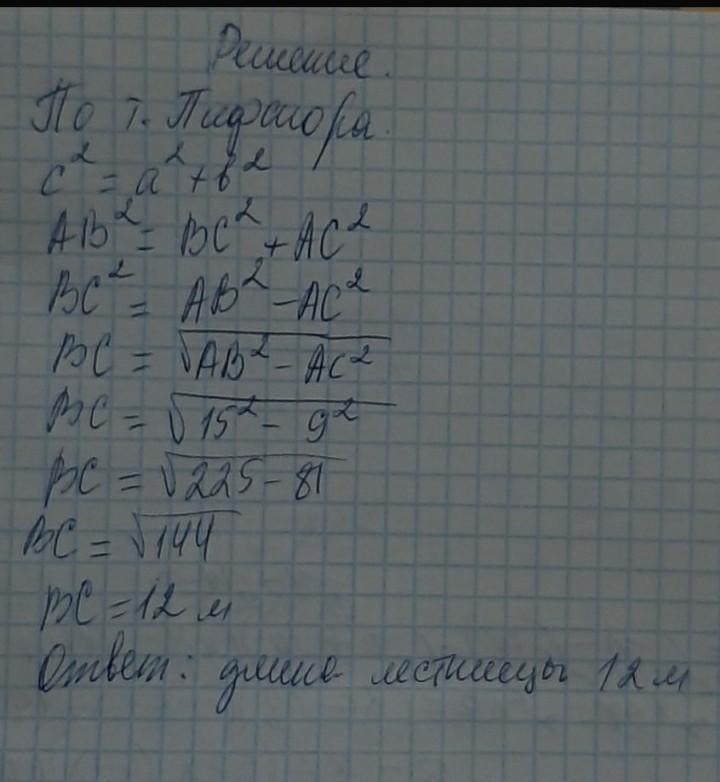 Решение.
По т. Пифагора.
c² = a² + b²
AB² = BC² + AC²
BC² = AB² - AC²
BC = √AB² - AC²
BC = √15² - 9²
BC = √225 - 81
BC = √144
BC = 12 м
Ответ: длина лестницы 12 м